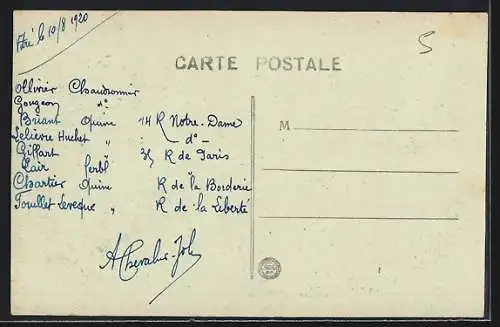 Vitré le 10/8 1920
5
CARTE POSTALE
Ollivier Chaudronnier
Gougeon d°
Briant Quinc 14 R Notre-Dame
Lelièvre Huchet " : d° -
Giffart " 35 R de Paris
Clair ferbl "
Chartier Quinc R de la Borderie
Fouillet Levesque " R de la Liberté
M
A Chevalier-Joly